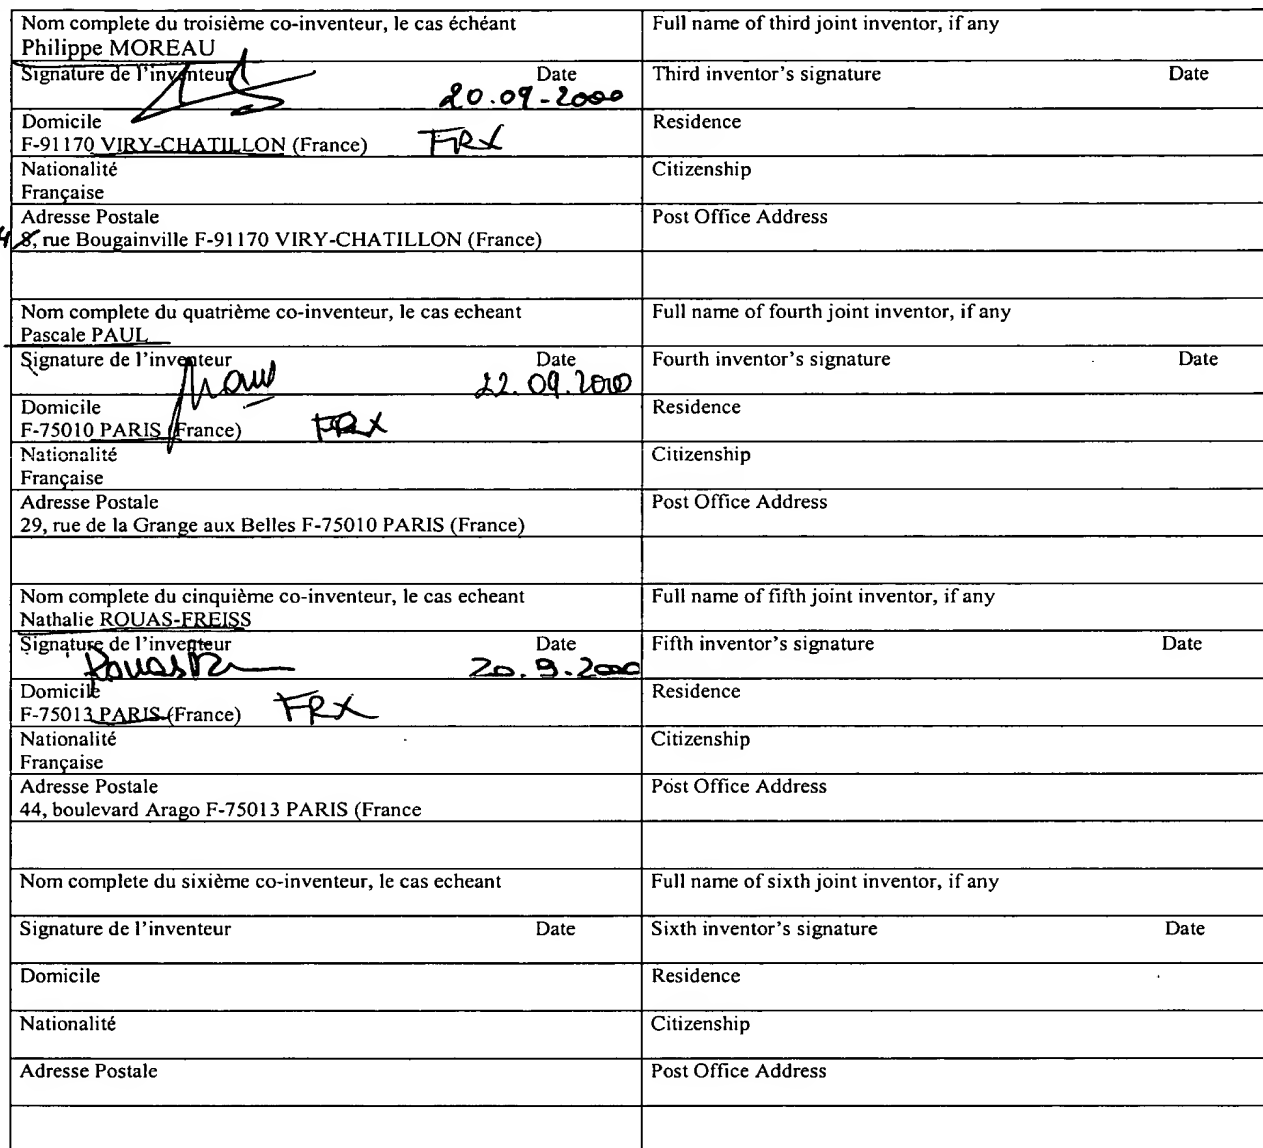 Nom complete du troisième co-inventeur, le cas échéant
Philippe MOREAU
Full name of third joint inventor, if any
Signature de l'inventeur Date
20.09-2000
Third inventor's signature Date
Domicile
F-91170 VIRY-CHATILLON (France) FRX
Residence
Nationalité
Française
Citizenship
Adresse Postale
4 8, rue Bougainville F-91170 VIRY-CHATILLON (France)
Post Office Address
Nom complete du quatrième co-inventeur, le cas echeant
Pascale PAUL
Full name of fourth joint inventor, if any
Signature de l'inventeur Date
22.09.2000
Fourth inventor's signature Date
Domicile
F-75010 PARIS (France) FRX
Residence
Nationalité
Française
Citizenship
Adresse Postale
29, rue de la Grange aux Belles F-75010 PARIS (France)
Post Office Address
Nom complete du cinquième co-inventeur, le cas echeant
Nathalie ROUAS-FREISS
Full name of fifth joint inventor, if any
Signature de l'inventeur Date
20.9.2000
Fifth inventor's signature Date
Domicile
F-75013 PARIS (France) FRX
Residence
Nationalité
Française
Citizenship
Adresse Postale
44, boulevard Arago F-75013 PARIS (France
Post Office Address
Nom complete du sixième co-inventeur, le cas echeant
Full name of sixth joint inventor, if any
Signature de l'inventeur Date
Sixth inventor's signature Date
Domicile
Residence
Nationalité
Citizenship
Adresse Postale
Post Office Address